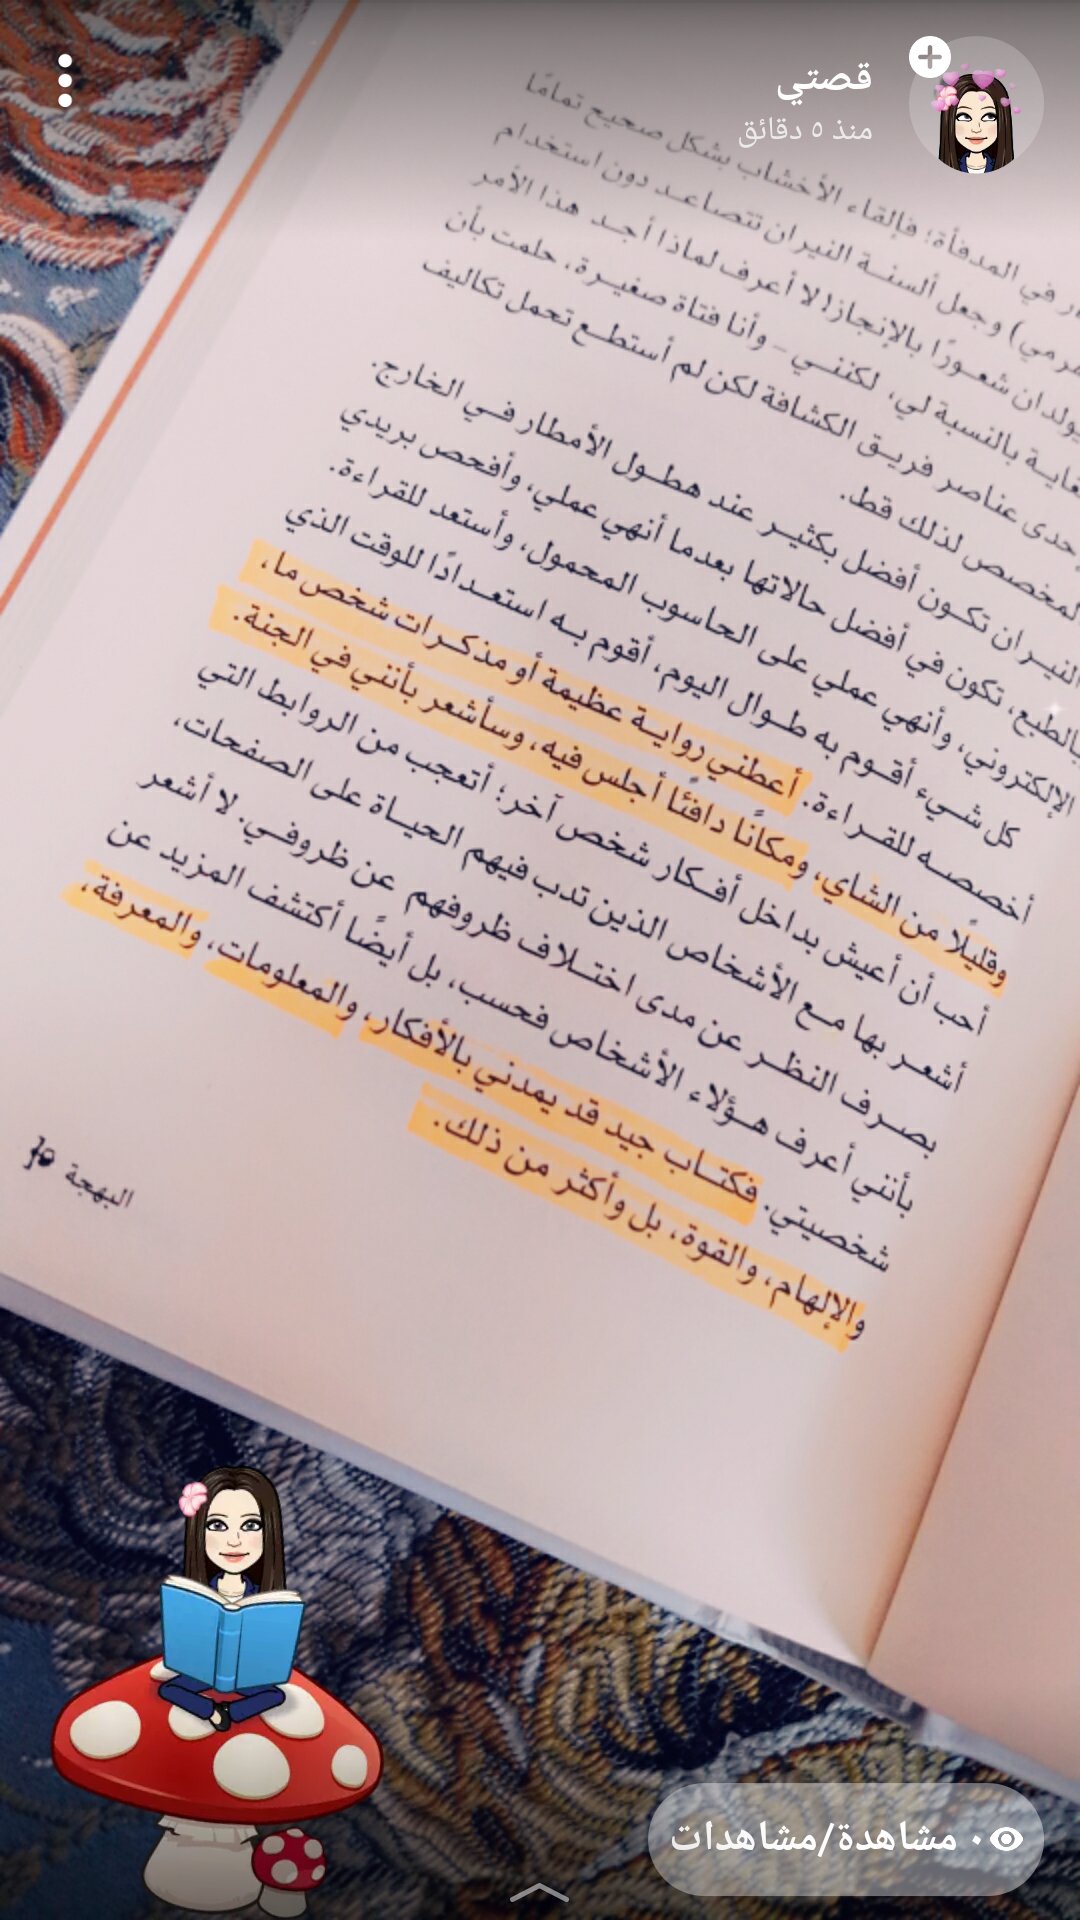 قصتي
منذ ٥ دقائق
في المدفأة؛ فإلقاء الأخشاب بشكل صحيح تمامًا
وجعل ألسنة النيران تتصاعد دون استخدام
شعورًا بالإنجاز! لا أعرف لماذا أجد هذا الأمر
بالنسبة لي، لكنني – وأنا فتاة صغيرة، حلمت بأن
عناصر فريق الكشافة لكن لم أستطع تحمل تكاليف
لذلك قط.
النيران تكون أفضل بكثير عند هطول الأمطار في الخارج.
بالطبع، تكون في أفضل حالاتها بعدما أنهي عملي، وأفحص بريدي
الإلكتروني، وأنهي عملي على الحاسوب المحمول، وأستعد للقراءة.
كل شيء أقوم به طوال اليوم، أقوم به استعدادًا للوقت الذي
أخصصه للقراءة. أعطني رواية عظيمة أو مذكرات شخص ما،
وقليلًا من الشاي، ومكانًا دافئًا أجلس فيه، وسأشعر بأنني في الجنة.
أحب أن أعيش بداخل أفكار شخص آخر؛ أتعجب من الروابط التي
أشعر بها مع الأشخاص الذين تدب فيهم الحياة على الصفحات،
بصرف النظر عن مدى اختلاف ظروفهم عن ظروفي. لا أشعر
بأنني أعرف هؤلاء الأشخاص فحسب، بل أيضًا أكتشف المزيد عن
شخصيتي. فكتاب جيد قد يمدني بالأفكار، والمعلومات، والمعرفة،
والإلهام، والقوة، بل وأكثر من ذلك.
البهجة
٠ مشاهدة/مشاهدات